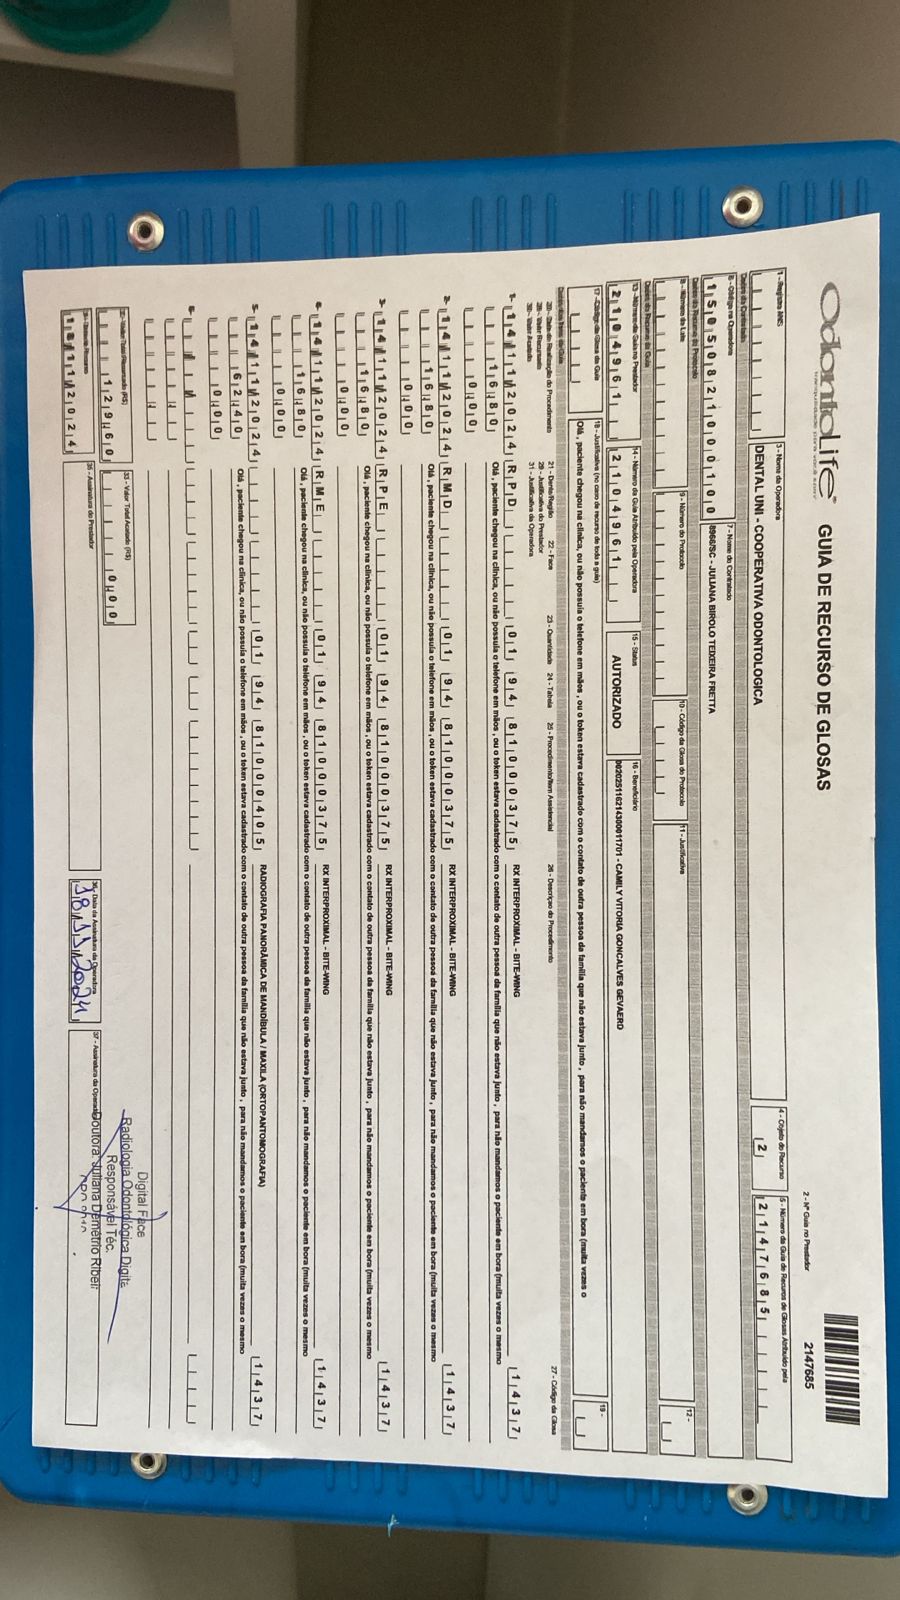 OdontoLife
GUIA DE RECURSO DE GLOSAS
2 - Nº Guia no Prestador
2147685
1 - Registro ANS
3 - Nome da Operadora
DENTAL UNI - COOPERATIVA ODONTOLOGICA
4 - Objeto do Recurso
2
5 - Número da Guia de Recurso de Glosas Atribuído pela
2147685
Dados do Contratado
6 - Código na Operadora
15050821000100
7 - Nome do Contratado
8966/SC - JULIANA BIROLO TEIXEIRA FRETTA
Dados do Recurso do Protocolo
8 - Número do Lote
9 - Número do Protocolo
10 - Código da Glosa do Protocolo
11 - Justificativa
12 -
Dados do Recurso da Guia
13 - Número da Guia no Prestador
21104961
14 - Número da Guia Atribuído pela Operadora
21104961
15 - Status
AUTORIZADO
16 - Beneficiário
002025116214300011701 - CAMILY VITORIA GONCALVES GEVAERD
17 - Código da Glosa da Guia
18 - Justificativa (no caso de recurso de toda a guia)
Olá , paciente chegou na clínica, ou não possuia o telefone em mãos , ou o token estava cadastrado com o contato de outra pessoa da família que não estava junto , para não mandamos o paciente em bora (muita vezes o
19 -
20 - Data de Realização do Procedimento 21 - Dente/Região 22 - Face 23 - Quantidade 24 - Tabela 25 - Procedimento/Item Assistencial 26 - Descrição do Procedimento 27 - Código da Glosa
28 - Valor Recursado 29 - Justificativa do Prestador
30 - Valor Acatado 31 - Justificativa da Operadora
1- 14/11/2024 RPD 01 94 81000375 RX INTERPROXIMAL - BITE-WING 1437
16,80 Olá , paciente chegou na clínica, ou não possuia o telefone em mãos , ou o token estava cadastrado com o contato de outra pessoa da família que não estava junto , para não mandamos o paciente em bora (muita vezes o mesmo
0,00
2- 14/11/2024 RMD 01 94 81000375 RX INTERPROXIMAL - BITE-WING 1437
16,80 Olá , paciente chegou na clínica, ou não possuia o telefone em mãos , ou o token estava cadastrado com o contato de outra pessoa da família que não estava junto , para não mandamos o paciente em bora (muita vezes o mesmo
0,00
3- 14/11/2024 RPE 01 94 81000375 RX INTERPROXIMAL - BITE-WING 1437
16,80 Olá , paciente chegou na clínica, ou não possuia o telefone em mãos , ou o token estava cadastrado com o contato de outra pessoa da família que não estava junto , para não mandamos o paciente em bora (muita vezes o mesmo
0,00
4- 14/11/2024 RME 01 94 81000375 RX INTERPROXIMAL - BITE-WING 1437
16,80 Olá , paciente chegou na clínica, ou não possuia o telefone em mãos , ou o token estava cadastrado com o contato de outra pessoa da família que não estava junto , para não mandamos o paciente em bora (muita vezes o mesmo
0,00
5- 14/11/2024 01 94 81000405 RADIOGRAFIA PANORÂMICA DE MANDÍBULA / MAXILA (ORTOPANTOMOGRAFIA) 1437
62,40 Olá , paciente chegou na clínica, ou não possuia o telefone em mãos , ou o token estava cadastrado com o contato de outra pessoa da família que não estava junto , para não mandamos o paciente em bora (muita vezes o mesmo
0,00
6-
32 - Valor Total Recursado (R$)
129,60
33 - Valor Total Acatado (R$)
0,00
18/11/2024
35 - Assinatura do Prestador
36 - Data da Assinatura da Operadora
18/11/2024
37 - Assinatura da Operadora
Digital Face
Radiologia Odontológica Digital
Responsável Téc.
Doutora: Juliana Demétrio Ribei